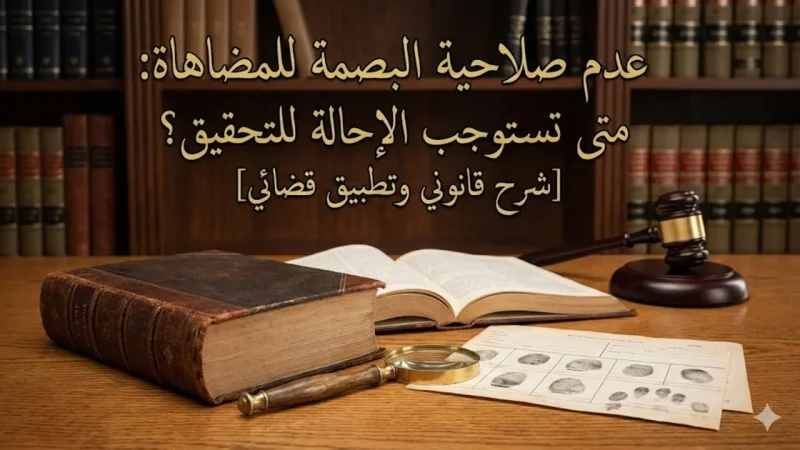 عدم صلاحية البصمة للمضاهاة:
متى تستوجب الإحالة للتحقيق؟
[شرح قانوني وتطبيق قضائي]